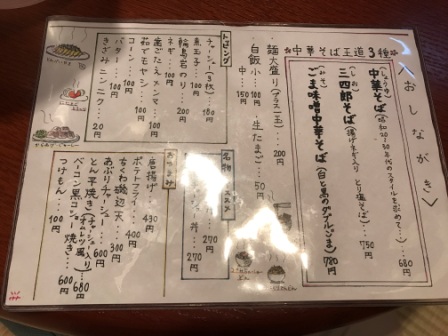 〈おしながき〉
☆中華そば王道3種☆
(しょうゆ)
中華そば
680円
(しお)
三四郎そば(揚げネギ入り とり塩そば)
750円
(みそ)
ごま味噌中華そば(白と黒のダブルごま)
780円
麺大盛り(プラス一玉)
200円
白飯 小…100円
中…150円
生たまご…50円
トッピング
チャーシュー(3枚)
180円
煮玉子…100円
輪島岩のり…200円
ネギ…100円
歯ごたえメンマ…200円
茹でモヤシ…100円
コーン…100円
バター…100円
きざみニンニク…20円
名物
丼…270円
270円
おつまみ
唐揚げ…430円
ポテトフライ…400円
ちくわ磯辺天…300円
あぶりチャーシュー…600円
とん平焼き(チャーシュー入りオムレツ風)
680円
ベーコン黒コショー焼き…600円
つけもん…100円